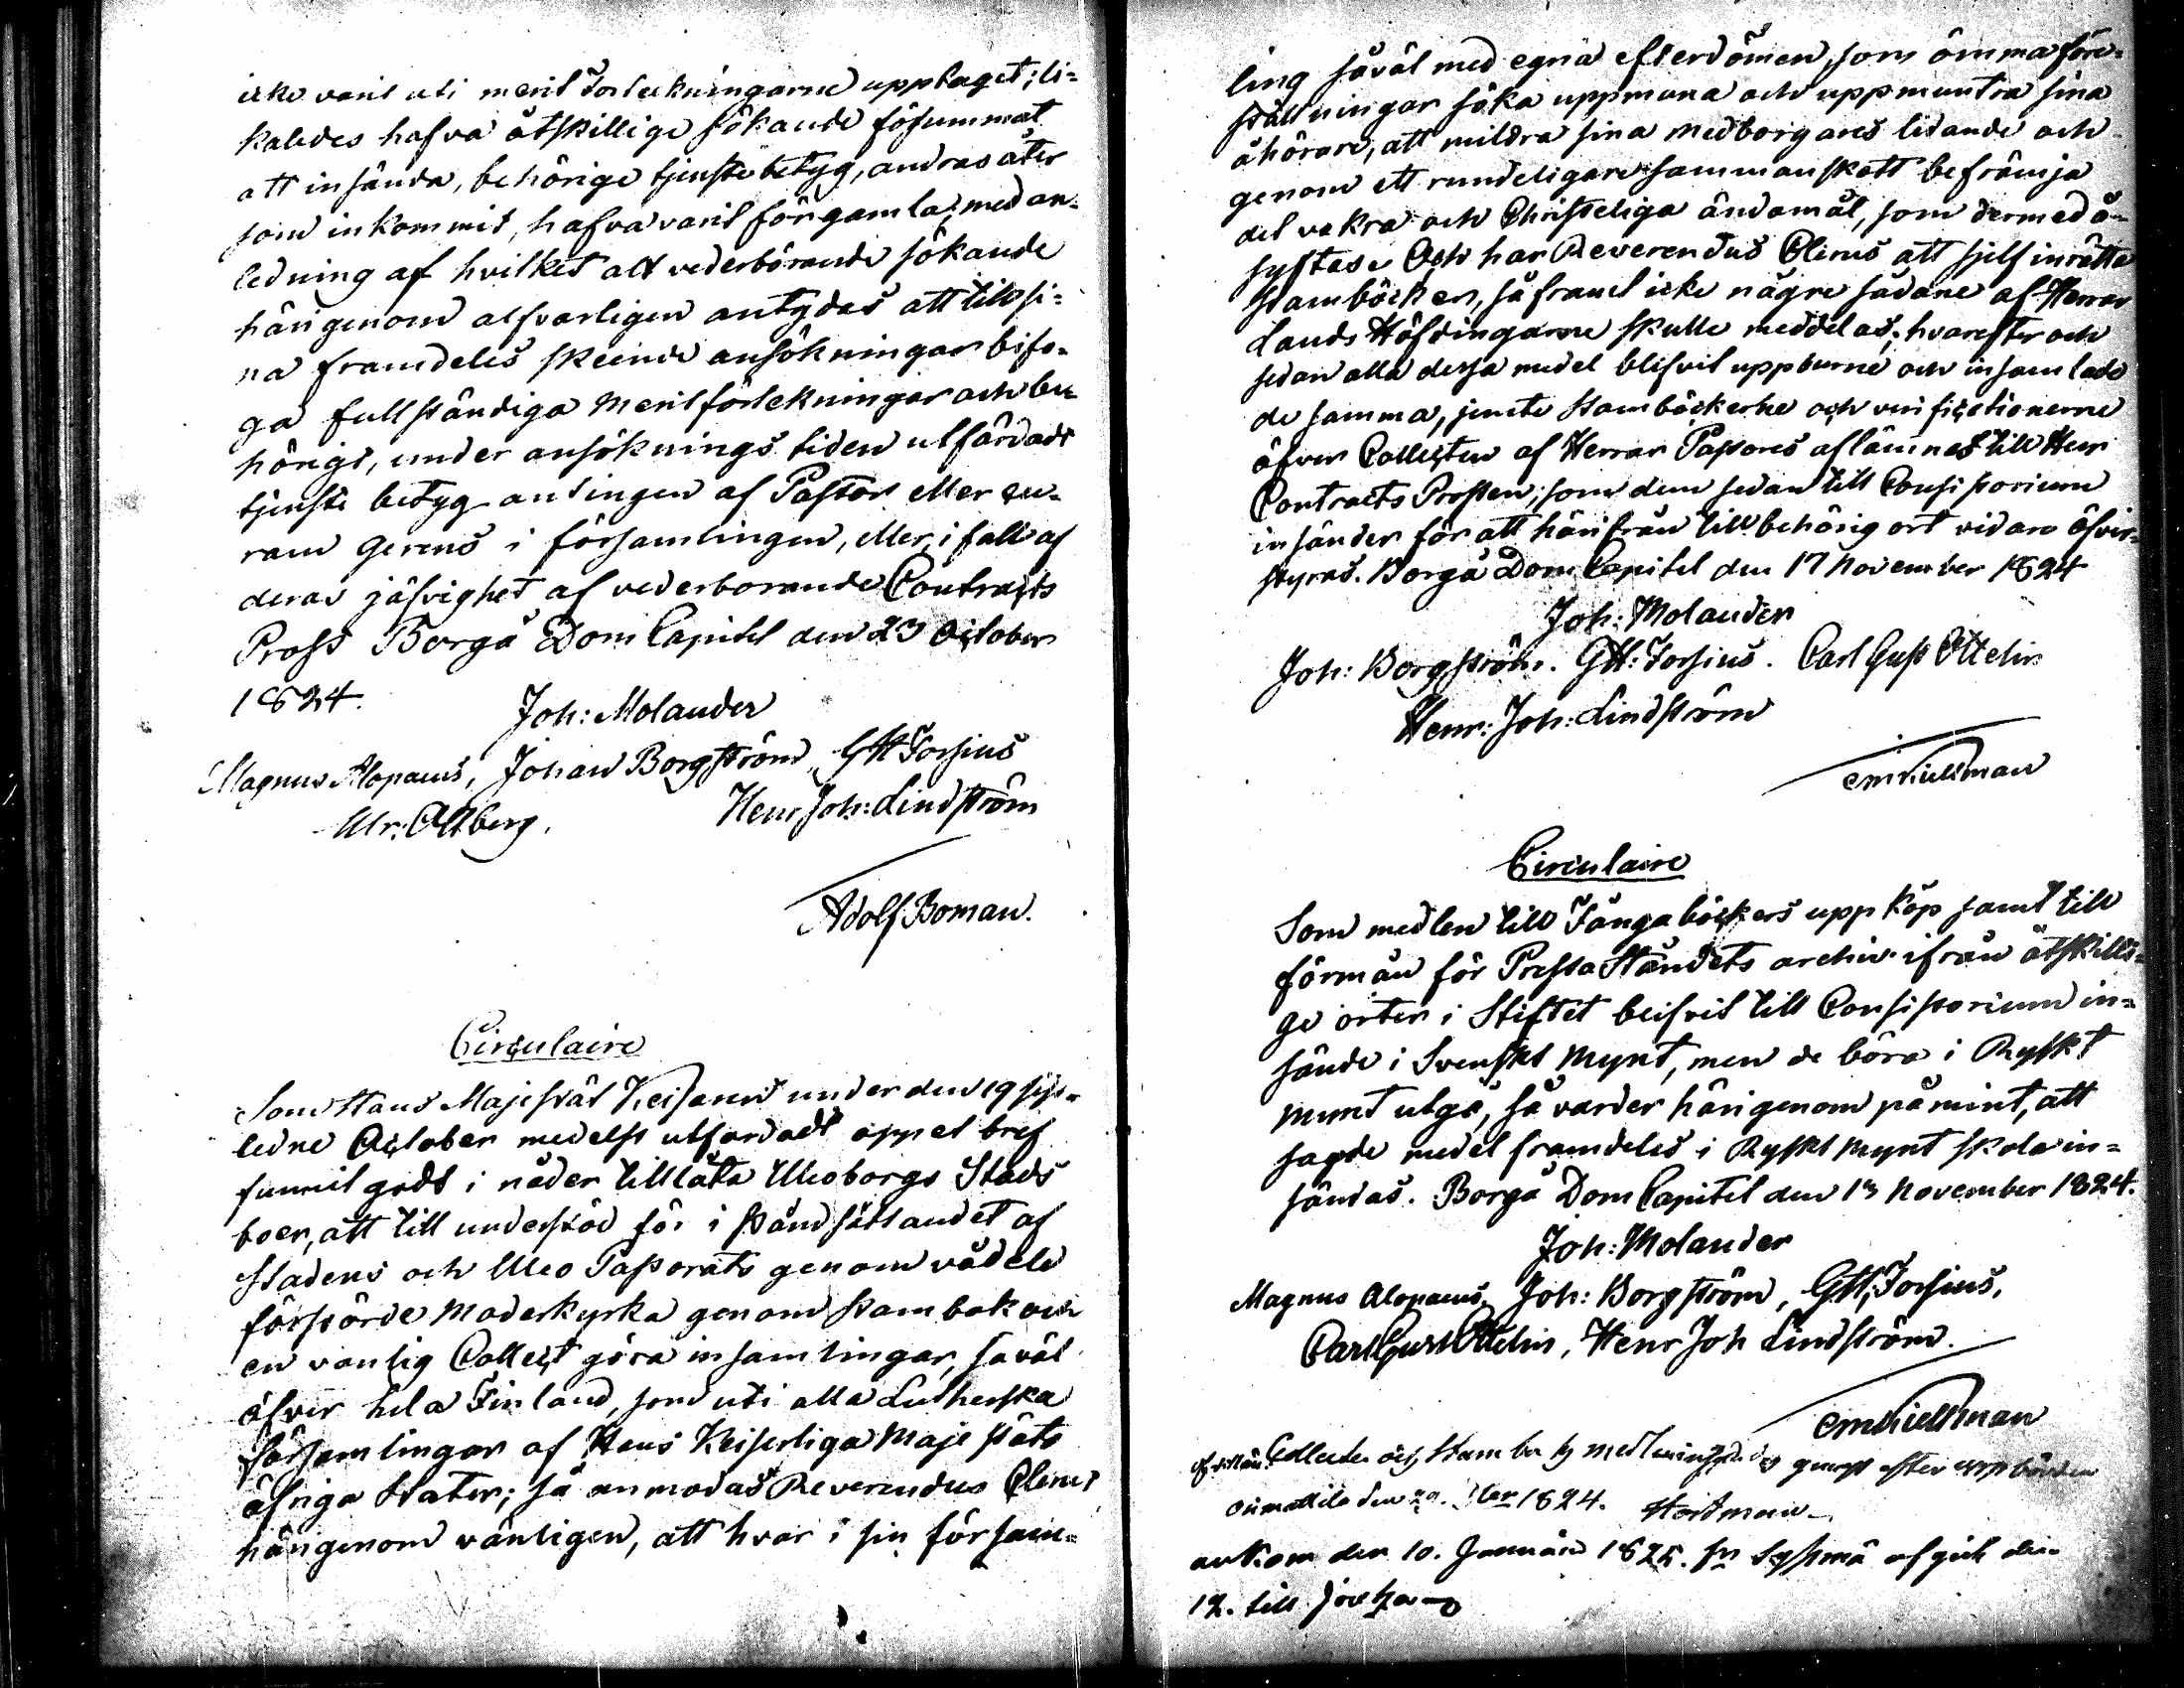 icke varit uti merit Förteckningarne upptaget; li=
kaledes hafva åtskillige sökande försummat
att insända, behörige tjenstebetyg, andras åter
som inkommit, hafva varit för gamla; med an=
ledning af hvilket alt vederbörande sökande
härigenom alfvarligen antydas att till si=
na framdeles skeende ansökningar bifo=
ga fullständiga Meritförtekningar och be
hörigt, under ansöknings tiden utfärdadt
tjenste betyg antingen af Pastor eller cu=
ram Gerens i församlingen, eller, i fall af
deras jäfvighet af vederborande Contracts
Prost Borgå Dom Capitel den 23 October
1824.
Joh: Molander
Magnus Alopaeus, Johan Borgström, GH Forsius
Ulr: Ahlberg. Henr Joh: Lindström
Adolf Boman.
Circulaire
Som Hans Majestät Keisaren under den 19 sist=
ledne October medelst utfärdadt öppet bref
funnit godt i nåder tillåta Uleoborgs Stads
boer, att till understöd för i ståndsättandet af
Stadens och Uleo Pastorats genom vådeld
förstörde Moderkyrka genom stambok och
en vanlig Collect göra insamlingar, såväl
öfver hela Finland, som uti alla Lutherska
Församlingar af Hans Keiserliga Majestäts
öfriga Stater; så anmodas Reverendus Clerus
härigenom vänligen, att hvar i sin försam=
ling såväl med egna efterdömen, som ömma före=
ställningar söka uppmana och uppmuntra sina
åhörare, att mildra sina medborgares lidande och
genom ett rundeligare sammanskott befrämja
det vakra och Christeliga ändamål, som dermed å=
syftas. Och har Reverendus Clerus att sjelf inrätta
stamböcker, så framt icke någre sådane af Herrar
Lands Höfdingarne skulle meddelas; hvarefter och
sedan alla dessa medel blifvit uppburne och insamlade
de samma, jemte stamböckerne och verificationerne
öfver Collecten af Herrar Pastores aflämnas till Herr
Contracts Prosten; som dem sedan till Consistorium
insänder för att härifrån till behörig ort vidare öfver=
styras. Borgå Dom Capitel den 17 November 1824
Joh: Molander
Joh: Borgström. GH: Forsius. Carl Gust Ottelin
Henr: Joh: Lindström
Circulaire
Som medlen till Fångaböckers uppköp samt till
förmån för Presta Ståndets archiv ifrån åtskilli=
ge orter i Stiftet blifvit till Consistorium in=
sände i Svenskt Mynt, men de böra i Ryskt
mynt utgå, så varder härigenom påmint, att
sagde medel framdeles i Ryskt Mynt skola in=
sändas. Borgå Dom Capitel den 17 November 1824.
Joh: Molander
Magnus Alopaeus, Joh: Borgström, GH: Forsius,
Carl Gust Ottelin, Henr Joh Lindström.
Collecten och Stambok medlen genast efter uppbörden
Orimattila den 1824. Hordman
ankom den 10. Januarii 1825. fr Sysmä afgick den
12. till Joutza